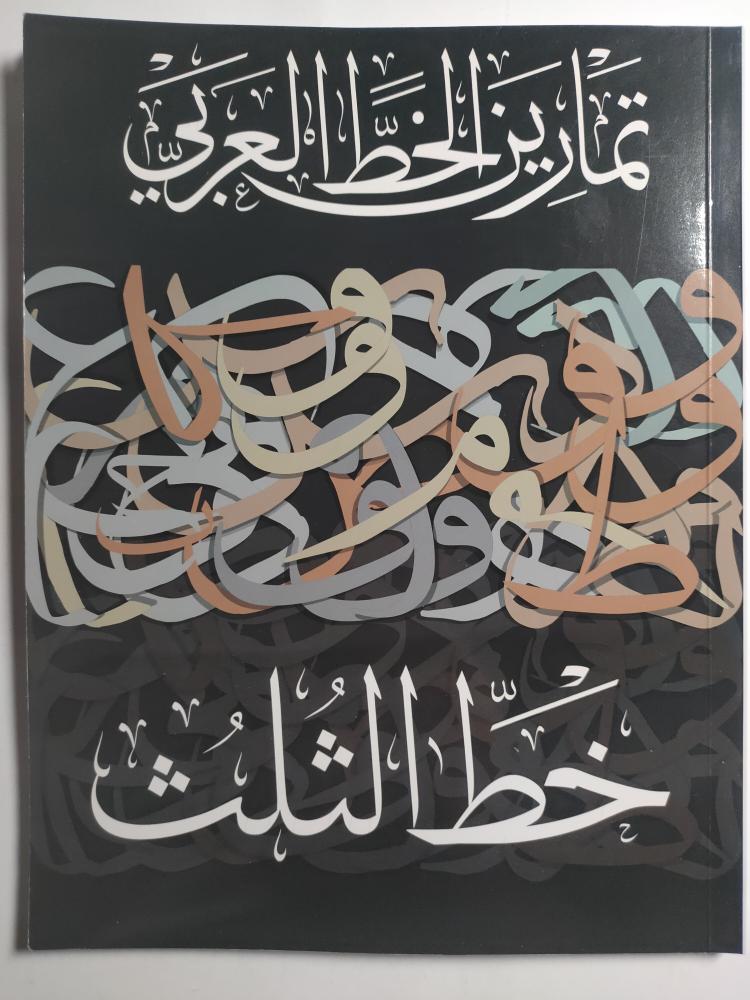 تمارين الخطّ العربيّ
خطّ الثُلُث